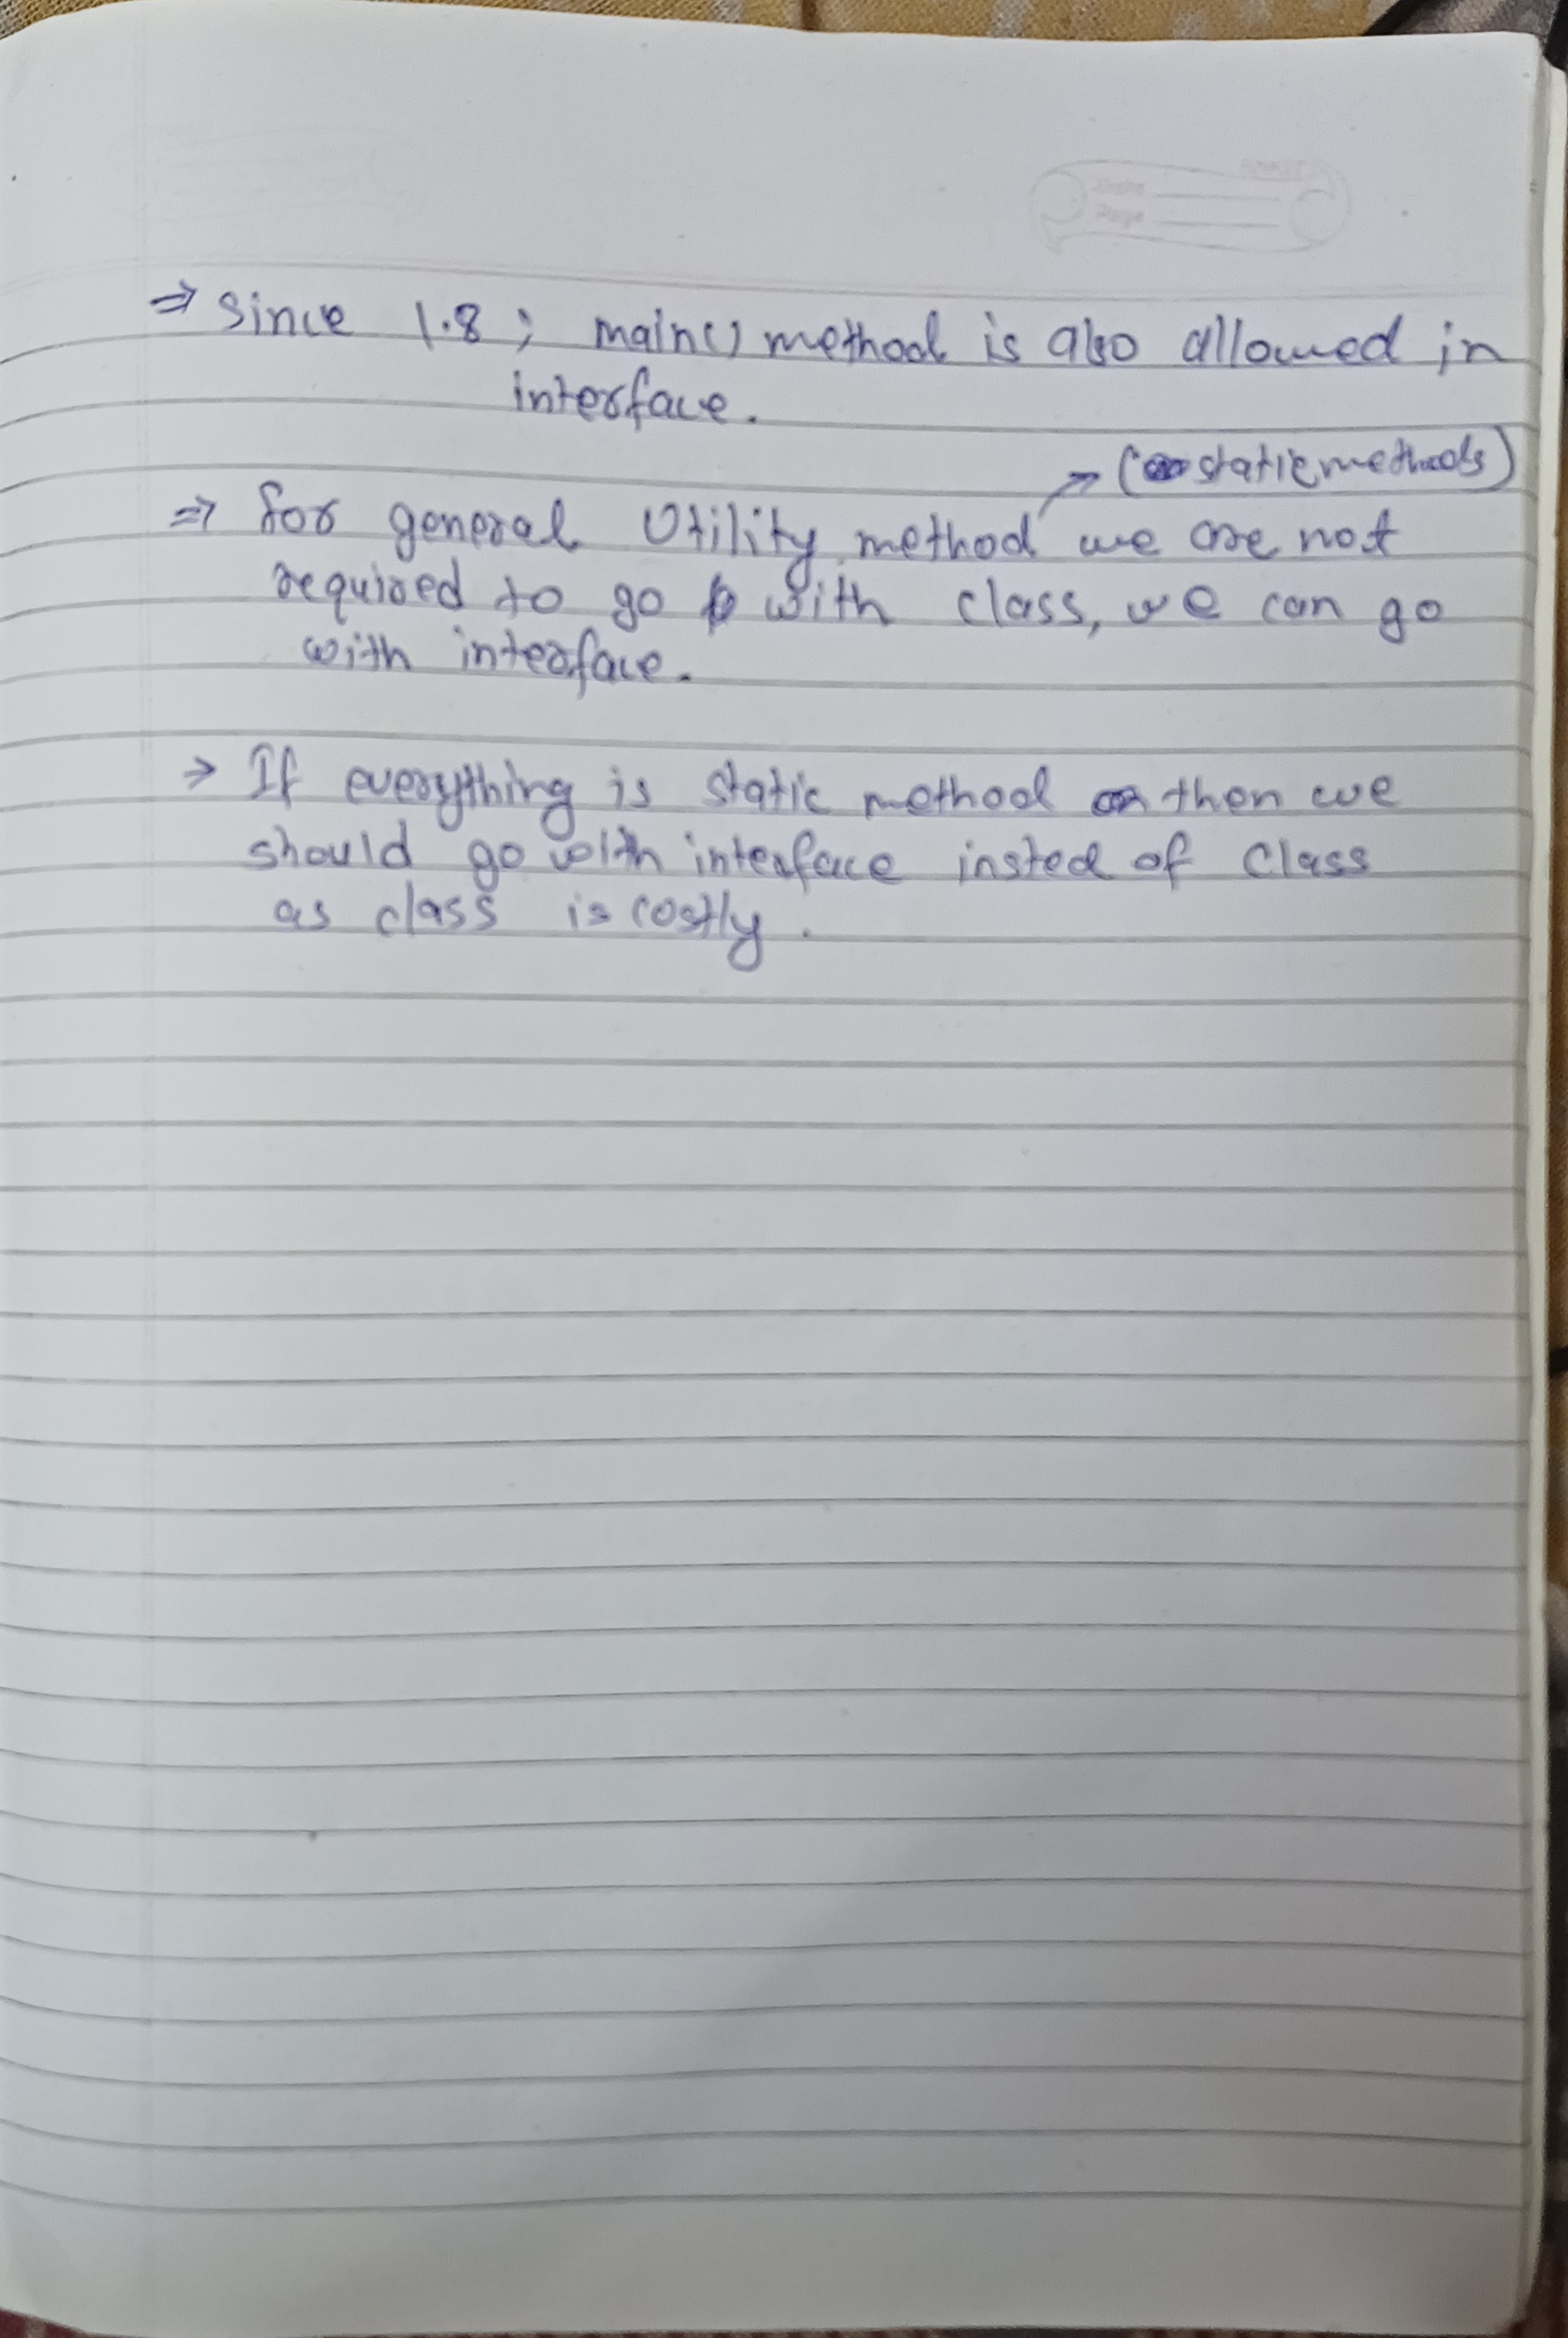 ⇒ Since 1.8; main() method is also allowed in
interface.
→ (static methods)
⇒ for general Utility method we are not
required to go with class, we can go
with interface.
→ If everything is static method then we
should go with interface insted of class
as class is costly.